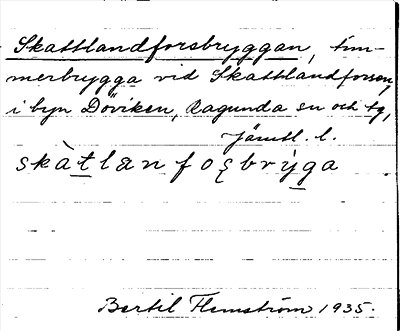 Skattlandforsbryggan, tim-
merbrygga vid Skattlandforsen,
i byn Döviken, Ragunda sn och tg,
Jämtl. l.
skàt̲lanfoʂbrỳg̲a
Bertil Flemström 1935.